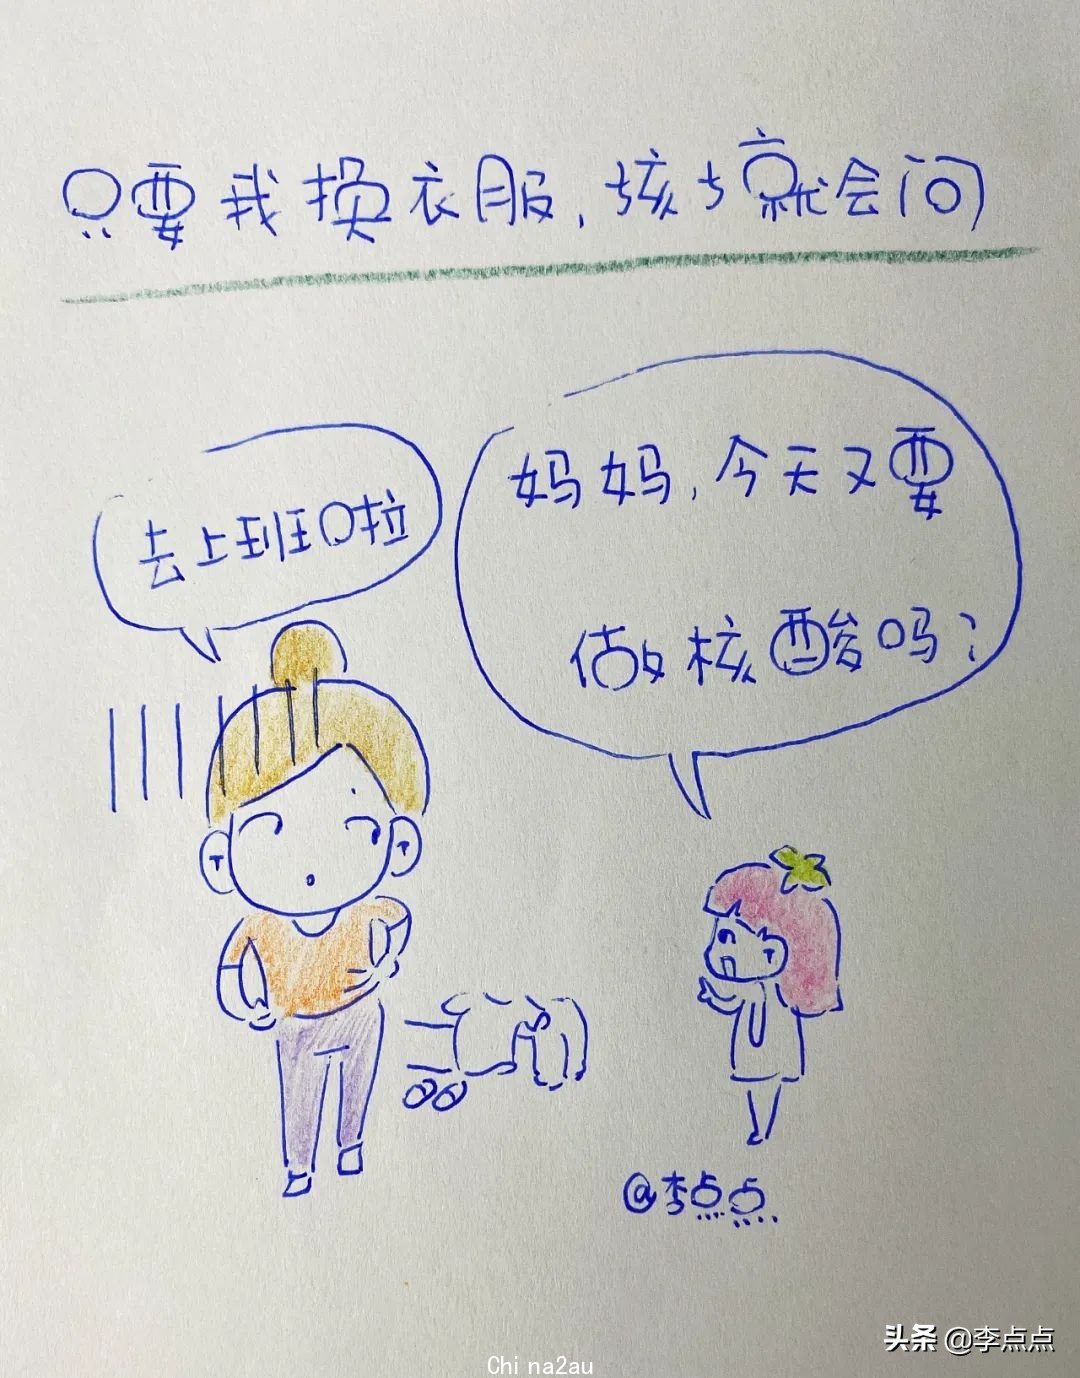 只要我换衣服,孩子就会问
去上班啦
妈妈,今天又要
做核酸吗?
@李点点
头条 @李点点
China2au